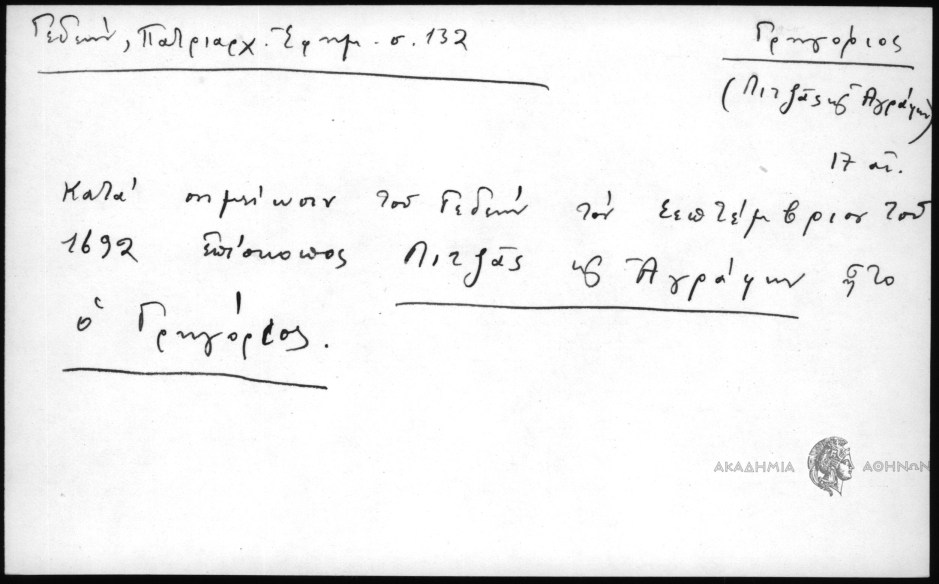 Γεδεών, Πατριαρχ. Ἐφημ. σ. 132
Γρηγόριος
(Λιτζᾶς κ Ἀγράφων)
17 αἰ.
Κατά σημείωσιν τοῦ Γεδεών τόν Σεπτέμβριον τοῦ
1692 ἐπίσκοπος Λιτζᾶς κ Ἀγράφων ἦτο
ὁ Γρηγόριος.
ΑΚΑΔΗΜΙΑ ΑΘΗΝΩΝ